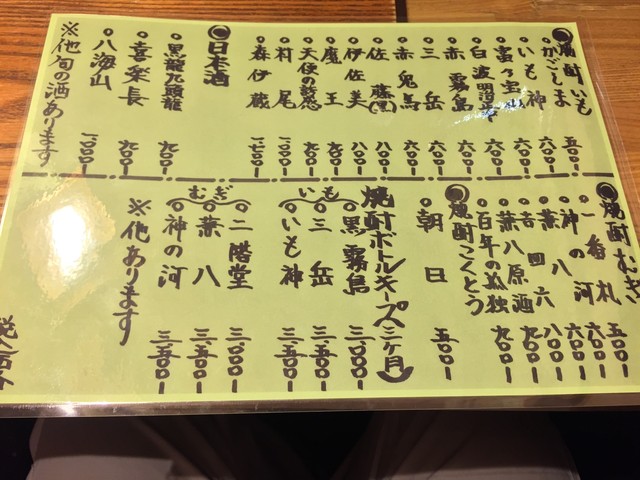 ◎焼酎いも
かごしま 五〇〇ー
いも神 六〇〇ー
富乃宝山 六〇〇ー
白波明治正 六〇〇ー
赤霧島 六〇〇ー
三岳 六〇〇ー
赤兎馬 六〇〇ー
佐藤(黒) 八〇〇ー
伊佐美 八〇〇ー
魔王 九〇〇ー
天使の誘惑 九〇〇ー
村尾 一〇〇〇ー
森伊蔵 一七〇〇ー
◎日本酒
黒龍九頭龍 九〇〇ー
喜楽長 九〇〇ー
八海山 一〇〇〇ー
※他旬の酒あります
◎焼酎むぎ
一番札 五〇〇ー
神の河 六〇〇ー
兼八 六〇〇ー
吉四六 八〇〇ー
兼八原酒 九〇〇ー
百年の孤独 九〇〇ー
◎焼酎こくとう
朝日 五〇〇ー
焼酎ボトルキープ(三ヶ月)
いも
黒霧島 三、〇〇〇ー
三岳 三、五〇〇ー
いも神 三、五〇〇ー
むぎ
二階堂 三、〇〇〇ー
兼八 三、五〇〇ー
神の河 三、五〇〇ー
※他あります